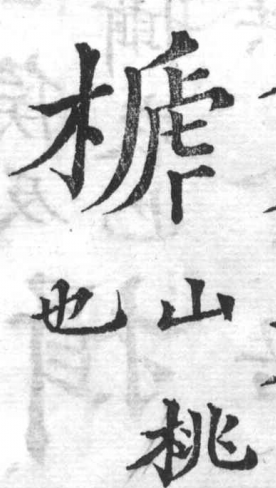 榹
山桃
也